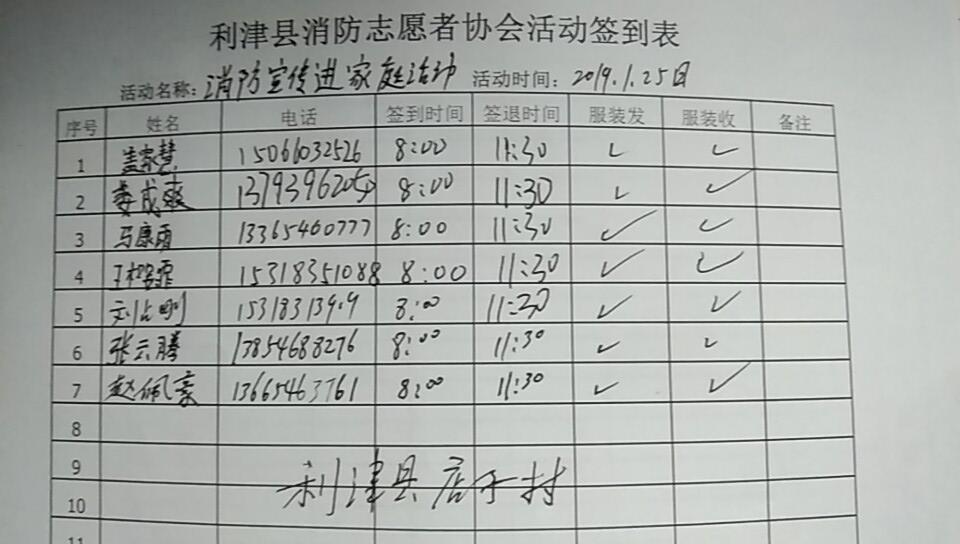 利津县消防志愿者协会活动签到表
活动名称：消防宣传进家庭活动 活动时间：2019.1.25日
序号 姓名 电话 签到时间 签退时间 服装发 服装收 备注
1 盖家慧 15066032526 8:00 11:30 ✓ ✓
2 娄成爽 1379396205 8:00 11:30 ✓ ✓
3 马康雨 13365460777 8:00 11:30 ✓ ✓
4 15318351088 8:00 11:30 ✓ ✓
5 刘占刚 8:00 11:30 ✓ ✓
6 张云腾 13854688276 8:00 11:30 ✓ ✓
7 赵佩豪 13665463761 8:00 11:30 ✓ ✓
8
9
利津县店子村
10
11